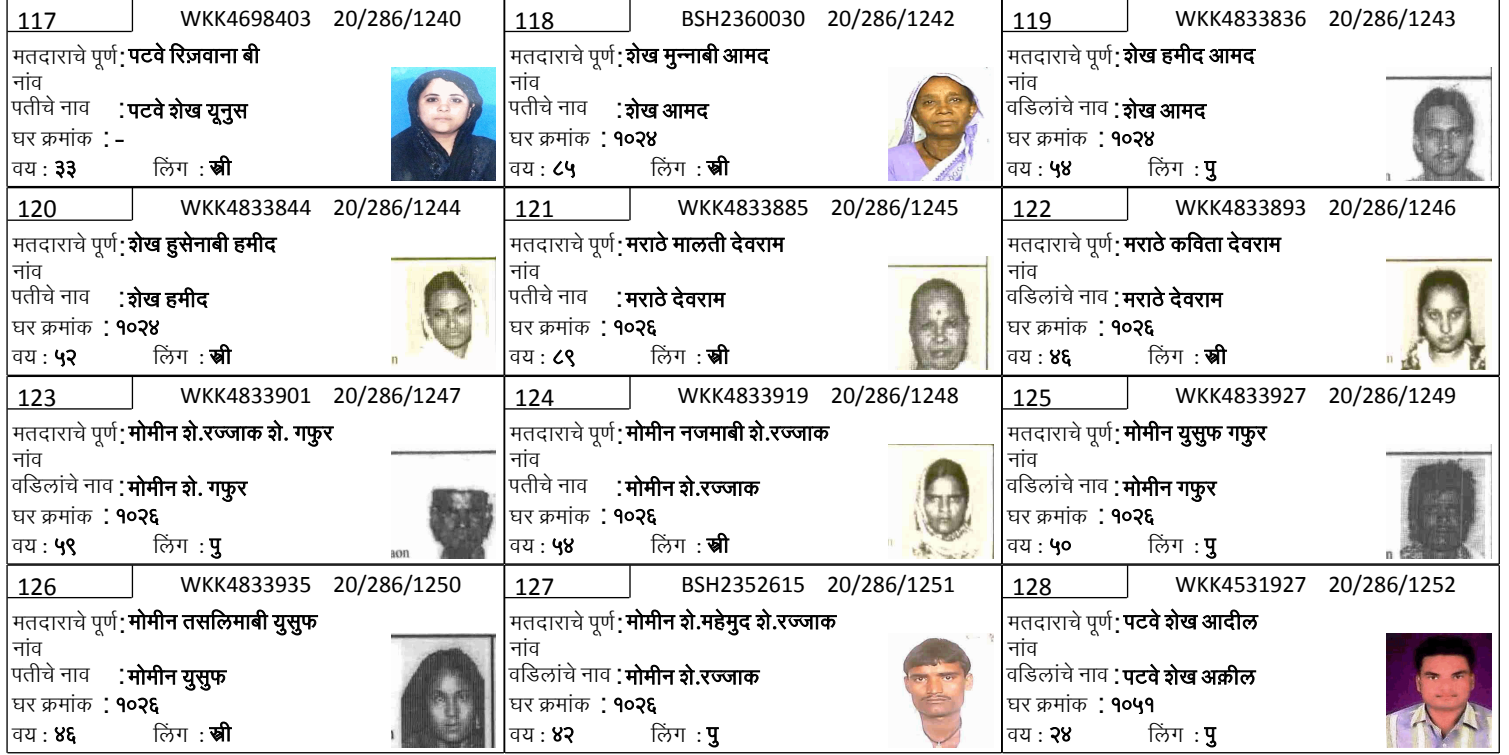 117 WKK4698403 20/286/1240
मतदाराचे पूर्ण : पटवे रिज़वाना बी
नांव
पतीचे नाव : पटवे शेख यूनुस
घर क्रमांक : -
वय : ३३ लिंग : स्त्री
118 BSH2360030 20/286/1242
मतदाराचे पूर्ण : शेख मुन्नाबी आमद
नांव
पतीचे नाव : शेख आमद
घर क्रमांक : १०२४
वय : ८५ लिंग : स्त्री
119 WKK4833836 20/286/1243
मतदाराचे पूर्ण : शेख हमीद आमद
नांव
वडिलांचे नाव : शेख आमद
घर क्रमांक : १०२४
वय : ५४ लिंग : पु
120 WKK4833844 20/286/1244
मतदाराचे पूर्ण : शेख हुसेनाबी हमीद
नांव
पतीचे नाव : शेख हमीद
घर क्रमांक : १०२४
वय : ५२ लिंग : स्त्री
121 WKK4833885 20/286/1245
मतदाराचे पूर्ण : मराठे मालती देवराम
नांव
पतीचे नाव : मराठे देवराम
घर क्रमांक : १०२६
वय : ८९ लिंग : स्त्री
122 WKK4833893 20/286/1246
मतदाराचे पूर्ण : मराठे कविता देवराम
नांव
वडिलांचे नाव : मराठे देवराम
घर क्रमांक : १०२६
वय : ४६ लिंग : स्त्री
123 WKK4833901 20/286/1247
मतदाराचे पूर्ण : मोमीन शे.रज्जाक शे. गफुर
नांव
वडिलांचे नाव : मोमीन शे. गफुर
घर क्रमांक : १०२६
वय : ५९ लिंग : पु
124 WKK4833919 20/286/1248
मतदाराचे पूर्ण : मोमीन नजमाबी शे.रज्जाक
नांव
पतीचे नाव : मोमीन शे.रज्जाक
घर क्रमांक : १०२६
वय : ५४ लिंग : स्त्री
125 WKK4833927 20/286/1249
मतदाराचे पूर्ण : मोमीन युसुफ गफुर
नांव
वडिलांचे नाव : मोमीन गफुर
घर क्रमांक : १०२६
वय : ५० लिंग : पु
126 WKK4833935 20/286/1250
मतदाराचे पूर्ण : मोमीन तसलिमाबी युसुफ
नांव
पतीचे नाव : मोमीन युसुफ
घर क्रमांक : १०२६
वय : ४६ लिंग : स्त्री
127 BSH2352615 20/286/1251
मतदाराचे पूर्ण : मोमीन शे.महेमुद शे.रज्जाक
नांव
वडिलांचे नाव : मोमीन शे.रज्जाक
घर क्रमांक : १०२६
वय : ४२ लिंग : पु
128 WKK4531927 20/286/1252
मतदाराचे पूर्ण : पटवे शेख आदील
नांव
वडिलांचे नाव : पटवे शेख अक़ील
घर क्रमांक : १०५१
वय : २४ लिंग : पु